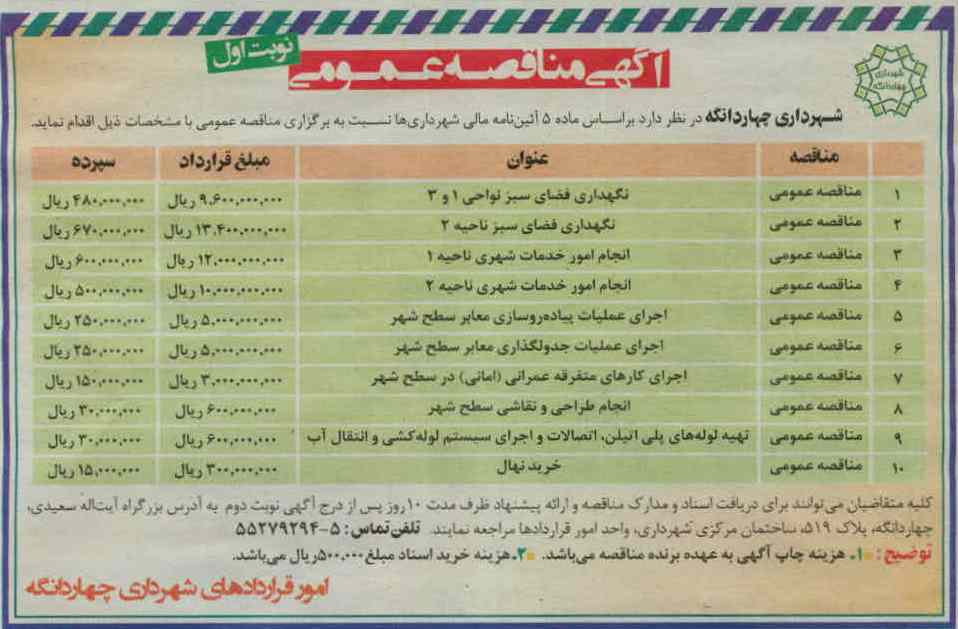 نوبت اول
آگهی مناقصه عمومی
شهرداری چهاردانگه
شهرداری چهاردانگه در نظر دارد براساس ماده ۵ آئین‌نامه مالی شهرداری‌ها نسبت به برگزاری مناقصه عمومی با مشخصات ذیل اقدام نماید.
مناقصه عنوان مبلغ قرارداد سپرده
۱ مناقصه عمومی نگهداری فضای سبز نواحی ۱ و ۳ ۹,۶۰۰,۰۰۰,۰۰۰ ریال ۴۸۰,۰۰۰,۰۰۰ ریال
۲ مناقصه عمومی نگهداری فضای سبز ناحیه ۲ ۱۳,۴۰۰,۰۰۰,۰۰۰ ریال ۶۷۰,۰۰۰,۰۰۰ ریال
۳ مناقصه عمومی انجام امور خدمات شهری ناحیه ۱ ۱۲,۰۰۰,۰۰۰,۰۰۰ ریال ۶۰۰,۰۰۰,۰۰۰ ریال
۴ مناقصه عمومی انجام امور خدمات شهری ناحیه ۲ ۱۰,۰۰۰,۰۰۰,۰۰۰ ریال ۵۰۰,۰۰۰,۰۰۰ ریال
۵ مناقصه عمومی اجرای عملیات پیاده‌روسازی معابر سطح شهر ۵,۰۰۰,۰۰۰,۰۰۰ ریال ۲۵۰,۰۰۰,۰۰۰ ریال
۶ مناقصه عمومی اجرای عملیات جدولگذاری معابر سطح شهر ۵,۰۰۰,۰۰۰,۰۰۰ ریال ۲۵۰,۰۰۰,۰۰۰ ریال
۷ مناقصه عمومی اجرای کارهای متفرقه عمرانی (امانی) در سطح شهر ۳,۰۰۰,۰۰۰,۰۰۰ ریال ۱۵۰,۰۰۰,۰۰۰ ریال
۸ مناقصه عمومی انجام طراحی و نقاشی سطح شهر ۶۰۰,۰۰۰,۰۰۰ ریال ۳۰,۰۰۰,۰۰۰ ریال
۹ مناقصه عمومی تهیه لوله‌های پلی اتیلن، اتصالات و اجرای سیستم لوله‌کشی و انتقال آب ۶۰۰,۰۰۰,۰۰۰ ریال ۳۰,۰۰۰,۰۰۰ ریال
۱۰ مناقصه عمومی خرید نهال ۳۰۰,۰۰۰,۰۰۰ ریال ۱۵,۰۰۰,۰۰۰ ریال
کلیه متقاضیان می‌توانند برای دریافت اسناد و مدارک مناقصه و ارائه پیشنهاد ظرف مدت ۱۰ روز پس از درج آگهی نوبت دوم به آدرس بزرگراه آیت‌اله سعیدی،
چهاردانگه، پلاک ۵۱۹، ساختمان مرکزی شهرداری، واحد امور قراردادها مراجعه نمایند. تلفن تماس: ۵-۵۵۲۷۹۲۹۴
توضیح: ۱. هزینه چاپ آگهی به عهده برنده مناقصه می‌باشد. ۲. هزینه خرید اسناد مبلغ ۵۰۰,۰۰۰ ریال می‌باشد.
امور قراردادهای شهرداری چهاردانگه